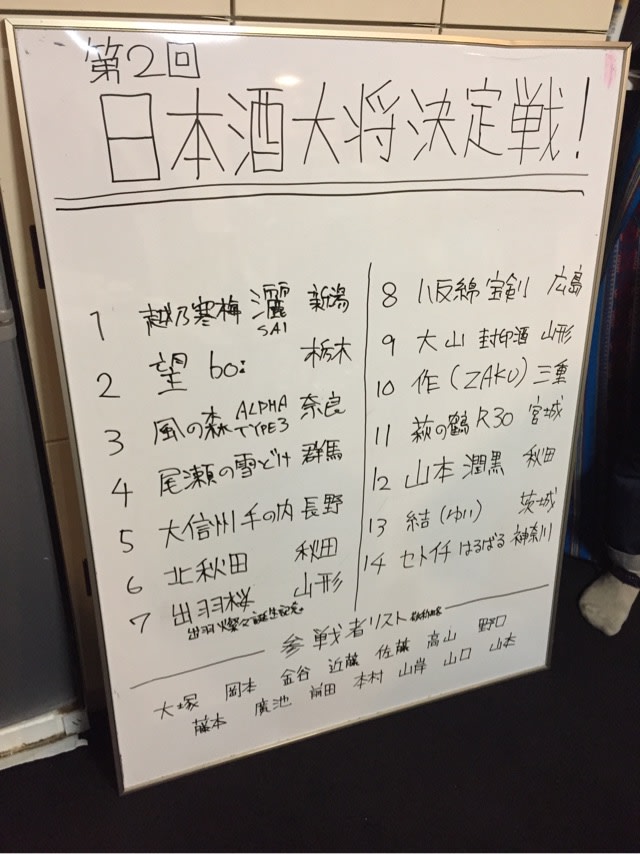 第2回
日本酒大将決定戦!
1 越乃寒梅 灑 新潟
SAI
2 望 bo: 栃木
3 風の森 ALPHA TYPE3 奈良
4 尾瀬の雪どけ 群馬
5 大信州 手の内 長野
6 北秋田 秋田
7 出羽桜 山形
出羽燦々誕生記念
8 八反錦 宝剣 広島
9 大山 封印酒 山形
10 作(ZAKU) 三重
11 萩の鶴 R30 宮城
12 山本 潤黒 秋田
13 結(ゆい) 茨城
14 セトイチ はるばる 神奈川
参戦者リスト 敬称略
大塚 岡本 金谷 近藤 佐藤 高山 野口
藤本 廣池 前田 本村 山岸 山口 山本